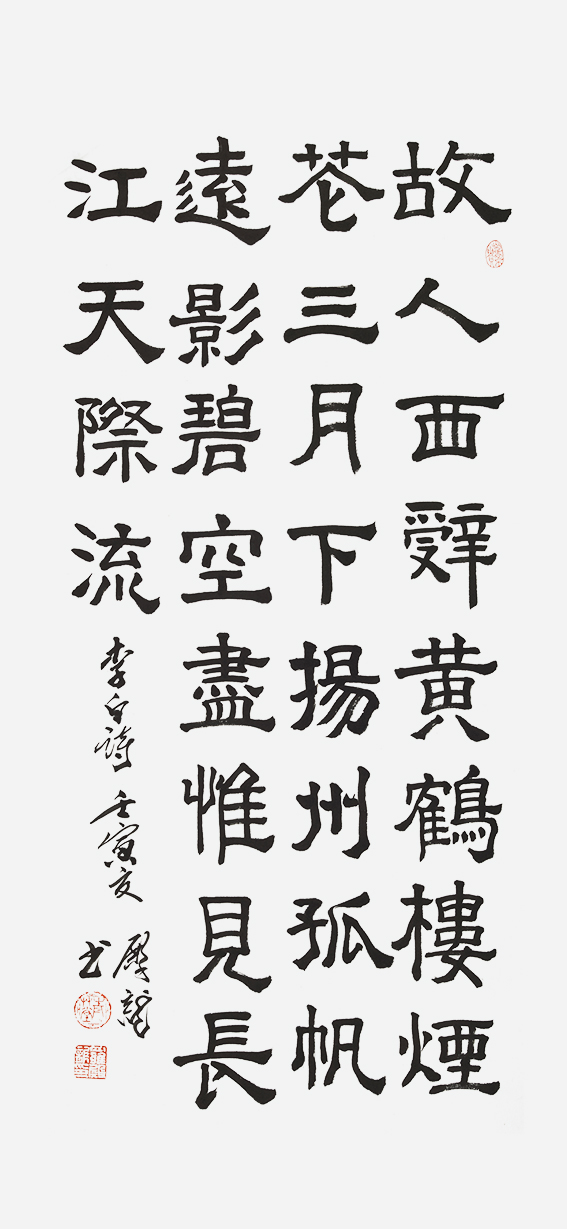 故人西辤黄鶴樓煙
花三月下揚州孤帆
遠影碧空盡惟見長
江天際流
李白詩 壬寅
书